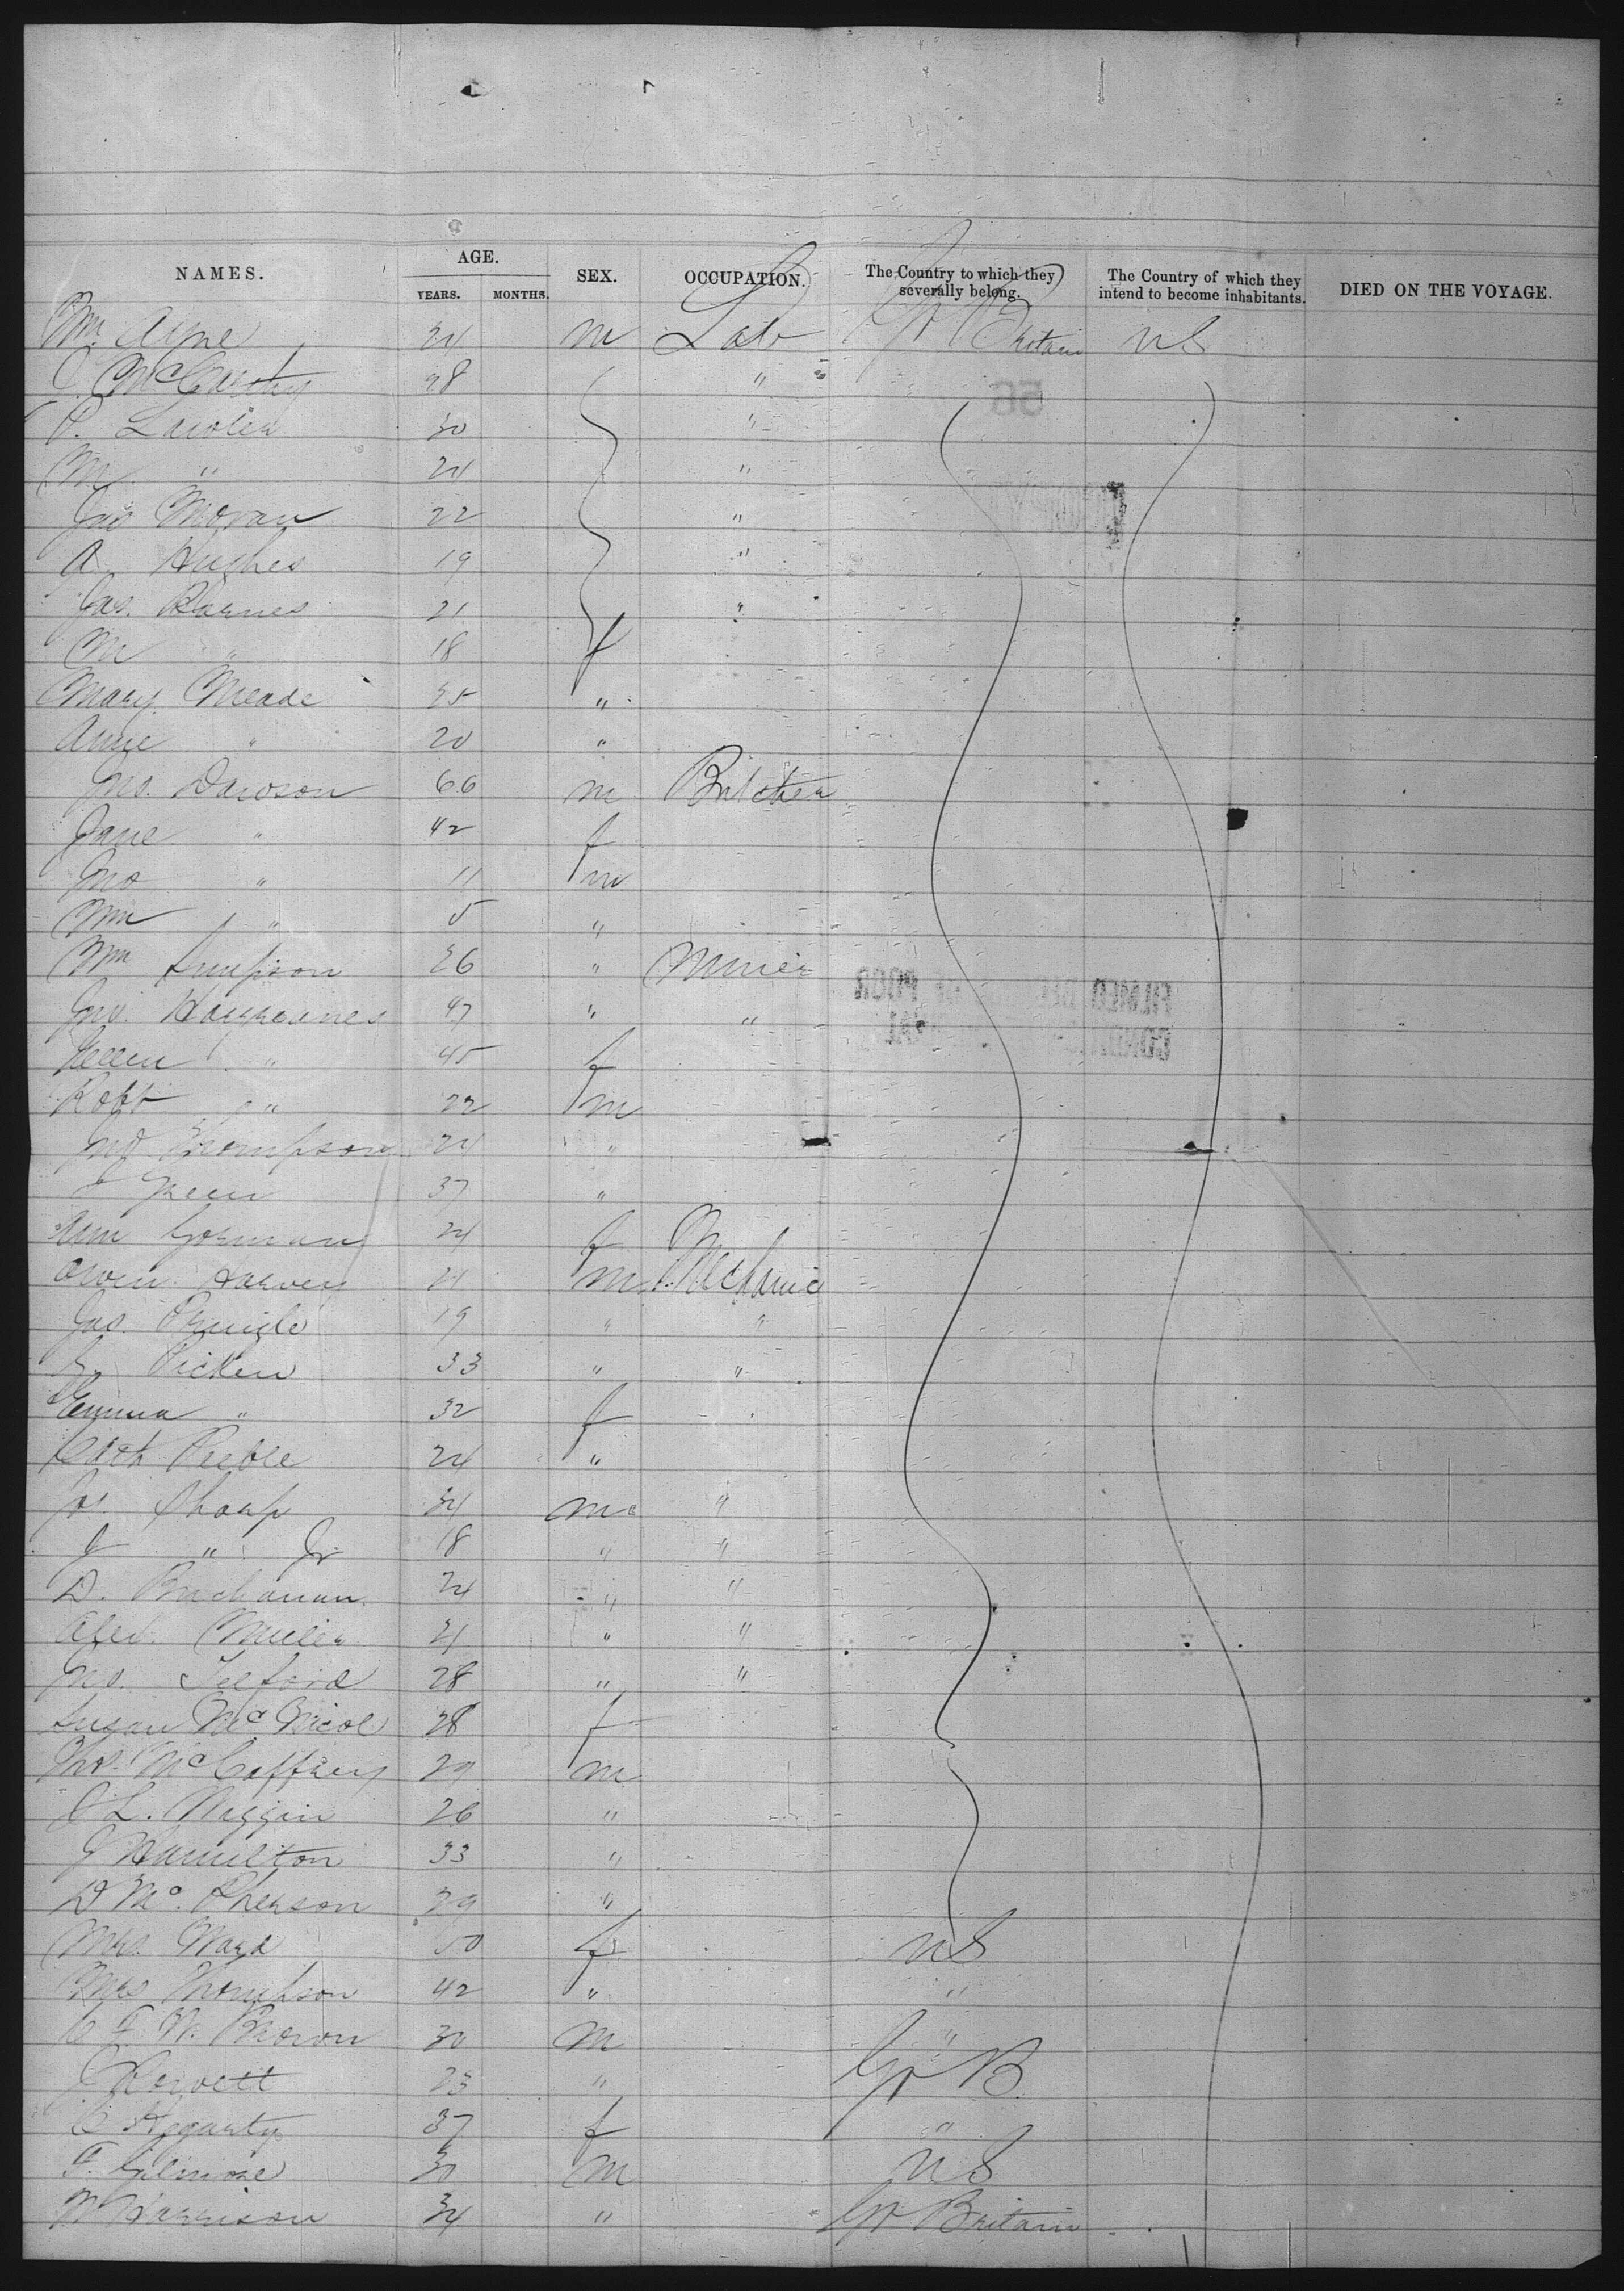 NAMES. AGE. YEARS. MONTHS. SEX. OCCUPATION. The Country to which they severally belong. The Country of which they intend to become inhabitants. DIED ON THE VOYAGE.
Wm. 24 m Lab Gr Britain US
McCarthy 28 "
P. Lawler 30 "
M " 24 "
Jas Moran 22 "
A. Hughes 19 "
Jas. Barnes 21 "
M " 18 f
Mary Meade 35 "
Anne " 20 "
Jno. Dawson 66 m Butcher
Jane " 42 f
Jno " 11 m
Wm " 5 "
Wm Simpson 26 " Miner
Jno. Hargreaves 47 " "
Ellen " 45 f
Robt " 22 m
Jno Thompson 24 "
J Green 37 "
Ann Gorman 24 f
Owen Harvey 21 m Mechanic
Jas. Pringle 19 " "
Picken 33 " "
Emma " 32 f
Cath Peeble 24 "
Jos. Sharp 34 m "
J " Jr 18 " "
D. Buchanan 24 " "
Alex. Miller 21 " "
Jno. Telford 28 " "
Susan McNicol 28 f
Thos. McCaffrey 29 m
J L. Niggin 26 "
J Hamilton 33 "
D Mc. Pherson 29 "
Mrs. Ward 50 f US
Mrs Thompson 42 " "
C F W. Brown 30 m "
23 " Gr B.
C Hegarty 37 f "
F. Gilmore 30 m US
W Harrison 34 " Gr Britain